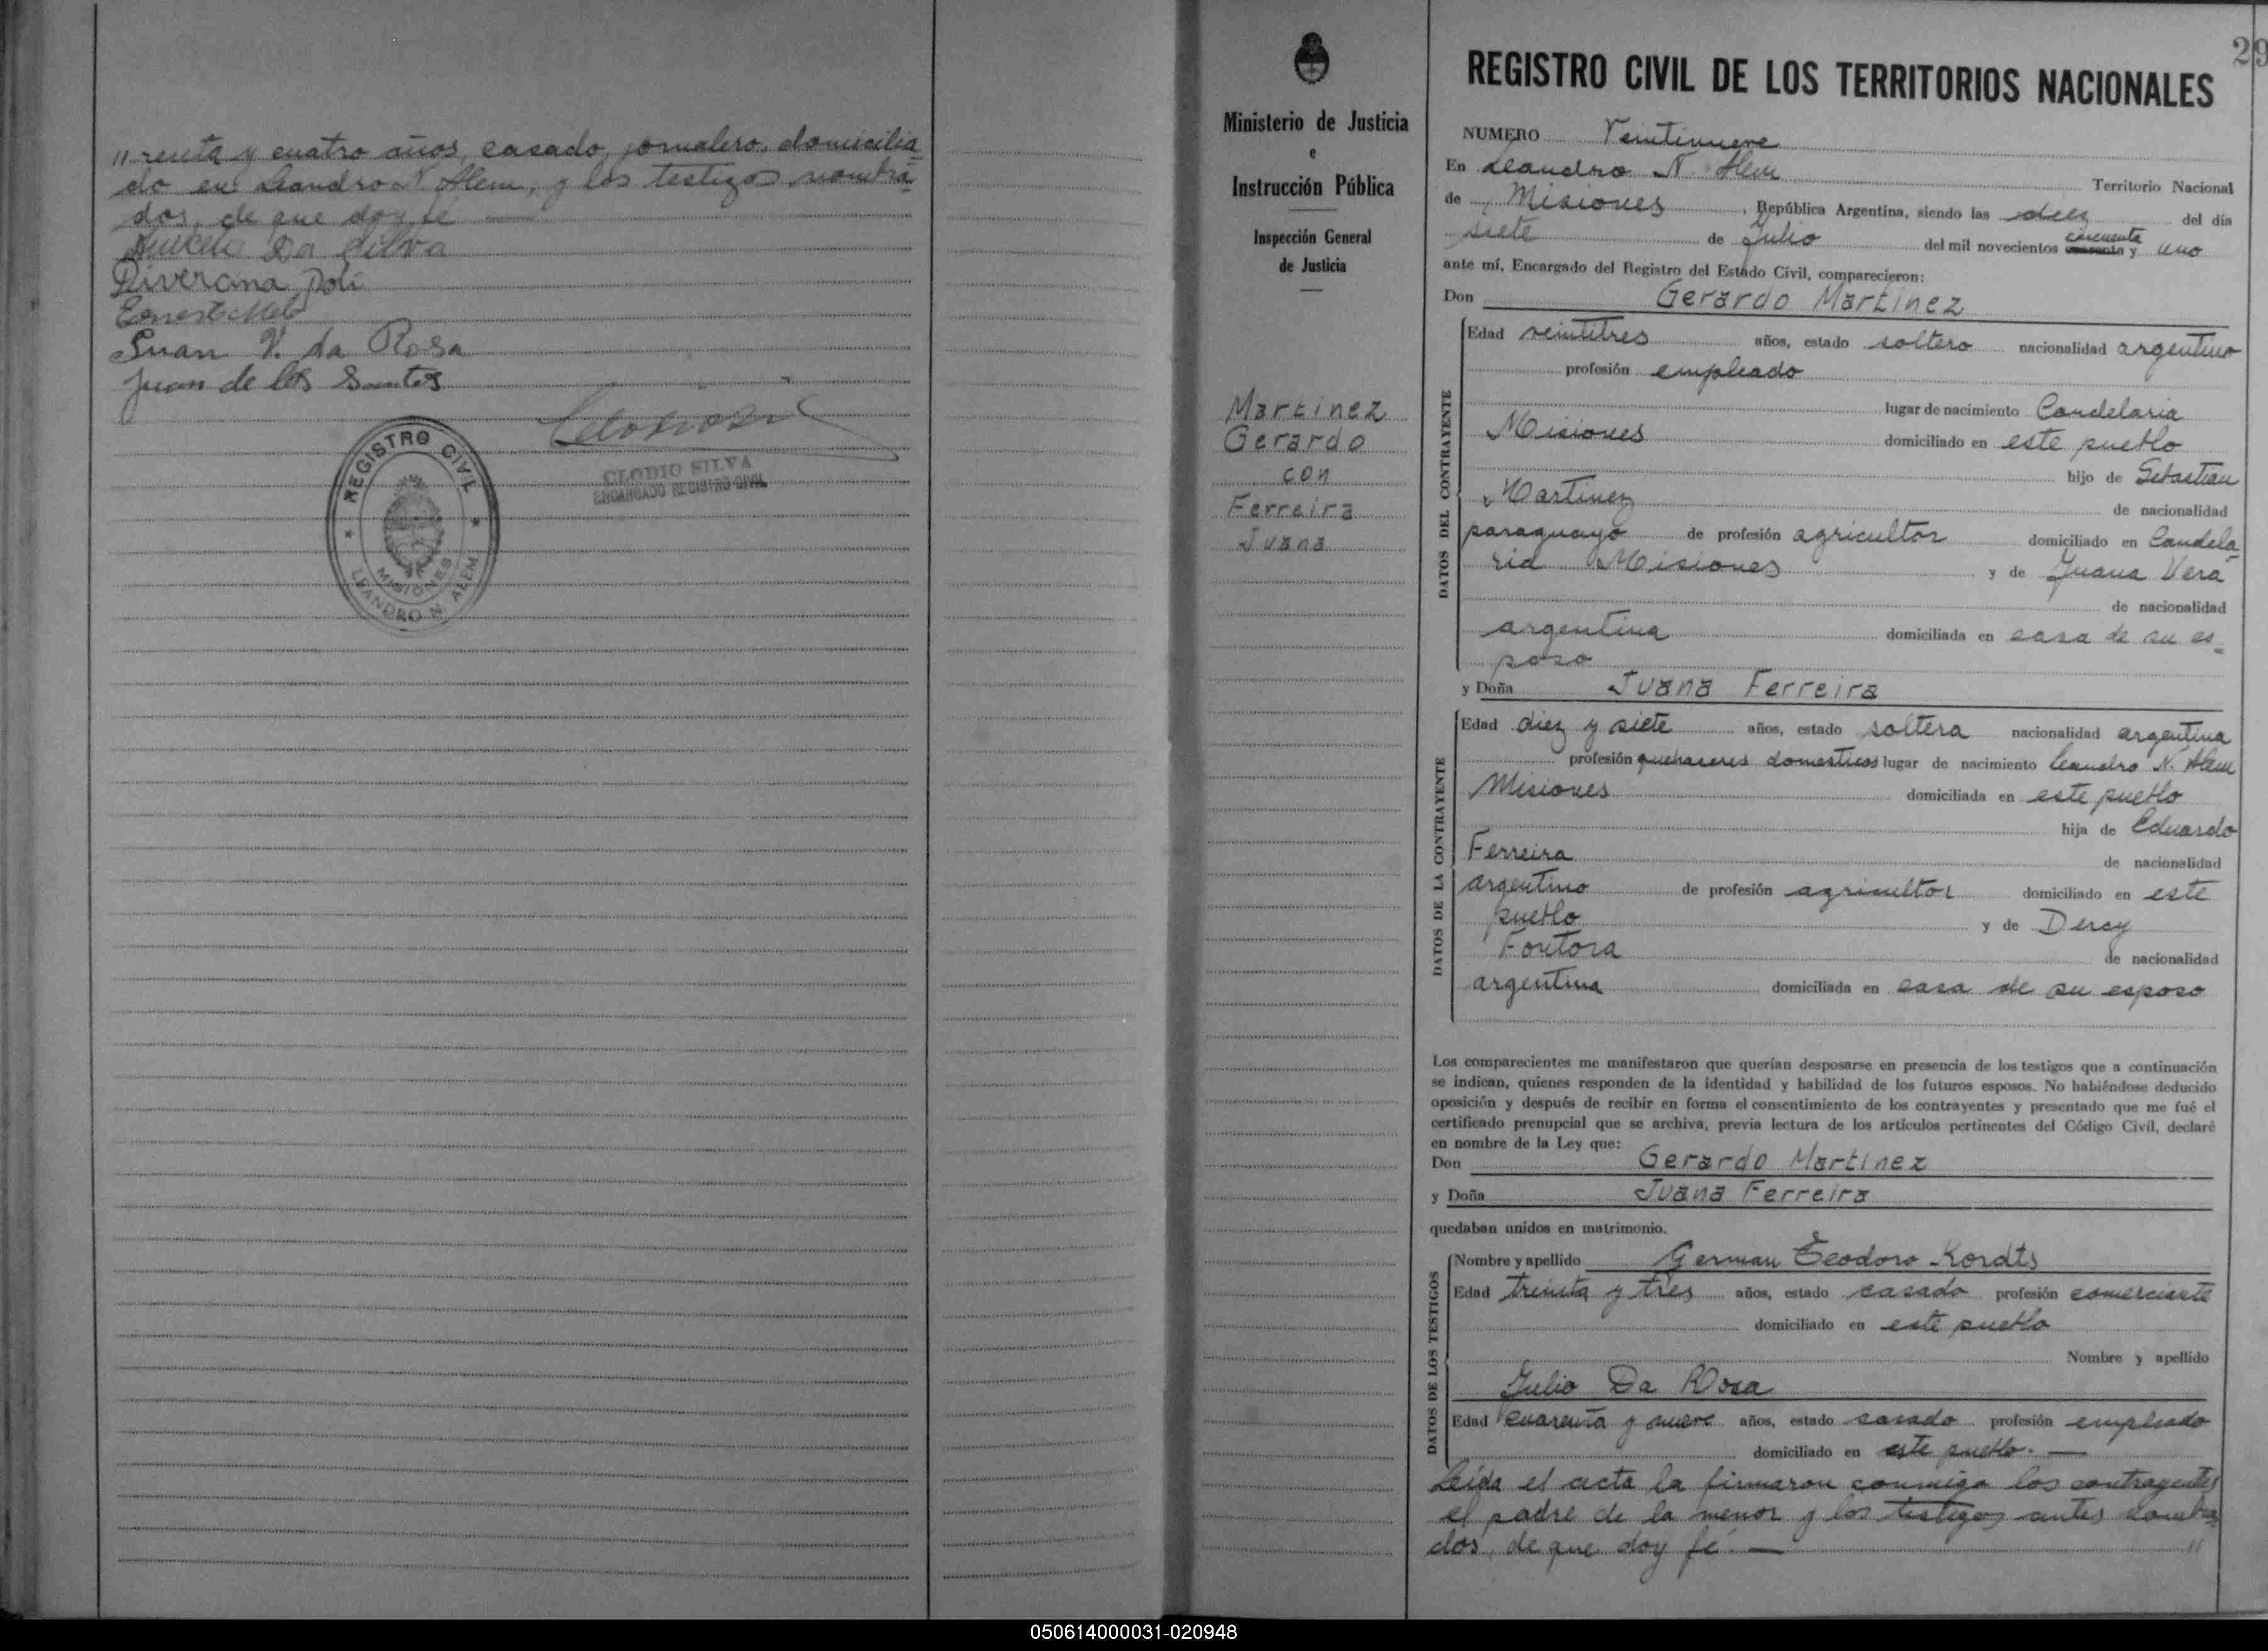 " renta y cuatro años, casado, jornalero, domicilia=
do en Leandro N. Alem, y los testigos nombra=
dos, de que doy fe
Da Silva
Riverana Poli
Ernesto Melo
Juan V. da Rosa
Juan de los Santos
CLODIO SILVA
ENCARGADO REGISTRO CIVIL
REGISTRO CIVIL
MISIONES
LEANDRO N. ALEM
Ministerio de Justicia
e
Instrucción Pública
Inspección General
de Justicia
Martinez
Gerardo
con
Ferreira
Juana
29
REGISTRO CIVIL DE LOS TERRITORIOS NACIONALES
NUMERO Veintinueve
En Leandro N. Alem Territorio Nacional
de Misiones, República Argentina, siendo las diez del día
siete de Julio del mil novecientos cincuenta y uno
ante mí, Encargado del Registro del Estado Civil, comparecieron:
Don Gerardo Martinez
DATOS DEL CONTRAYENTE
Edad veintitres años, estado soltero nacionalidad argentino
profesión empleado
lugar de nacimiento Candelaria
Misiones domiciliado en este pueblo
hijo de Sebastian
Martinez de nacionalidad
paraguayo de profesión agricultor domiciliado en Candela=
ria Misiones y de Juana Vera
de nacionalidad
argentina domiciliada en casa de su es=
poso
y Doña Juana Ferreira
DATOS DE LA CONTRAYENTE
Edad diez y siete años, estado soltera nacionalidad argentina
profesión quehaceres domesticos lugar de nacimiento Leandro N. Alem
Misiones domiciliada en este pueblo
hija de Eduardo
Ferreira de nacionalidad
argentino de profesión agricultor domiciliado en este
pueblo y de Dercy
Fontora de nacionalidad
argentina domiciliada en casa de su esposo
Los comparecientes me manifestaron que querían desposarse en presencia de los testigos que a continuación
se indican, quienes responden de la identidad y habilidad de los futuros esposos. No habiéndose deducido
oposición y después de recibir en forma el consentimiento de los contrayentes y presentado que me fué el
certificado prenupcial que se archiva, previa lectura de los artículos pertinentes del Código Civil, declaré
en nombre de la Ley que:
Don Gerardo Martinez
y Doña Juana Ferreira
quedaban unidos en matrimonio.
DATOS DE LOS TESTIGOS
Nombre y apellido German Teodoro Kordts
Edad treinta y tres años, estado casado profesión comerciante
domiciliado en este pueblo
Nombre y apellido
Julio Da Rosa
Edad cuarenta y nueve años, estado casado profesión empleado
domiciliado en este pueblo. —
Leída el acta la firmaron conmigo los contrayentes
el padre de la menor y los testigos antes nombra=
dos, de que doy fe. — "
050614000031-020948